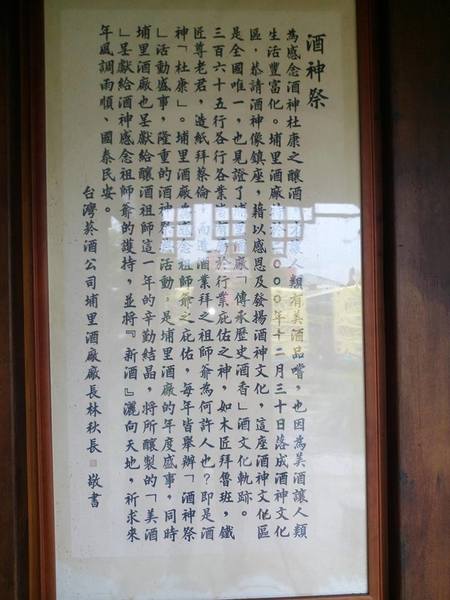 酒神祭
為感念酒神杜康之釀酒，才讓人類有美酒品嚐，也因為美酒讓人類
生活豐富化。埔里酒廠 000年十二月三十日落成酒神文化
區，恭請酒神像鎮座，藉以感恩及發揚酒神文化，這座酒神文化區
是全國唯一，也見證了埔里酒廠「傳承歷史酒香」酒文化軌跡。
三百六十五行各行各業 屬於行業庇佑之神，如木匠拜魯班，鐵
匠尊老君，造紙拜蔡倫，而造酒業拜之祖師爺為何許人也？即是酒
神「杜康」。埔里酒廠為感念祖師爺之庇佑，每年皆舉辦「酒神祭
」活動盛事，隆重的酒神祭 活動，是埔里酒廠的年度盛事，同時
埔里酒廠也呈獻給釀酒祖師這一年的辛勤結晶，將所釀製的「美酒
」呈獻給酒神感念祖師爺的護持，並將『新酒』灑向天地，祈求來
年風調雨順、國泰民安。
台灣菸酒公司埔里酒廠廠長林秋長 敬書